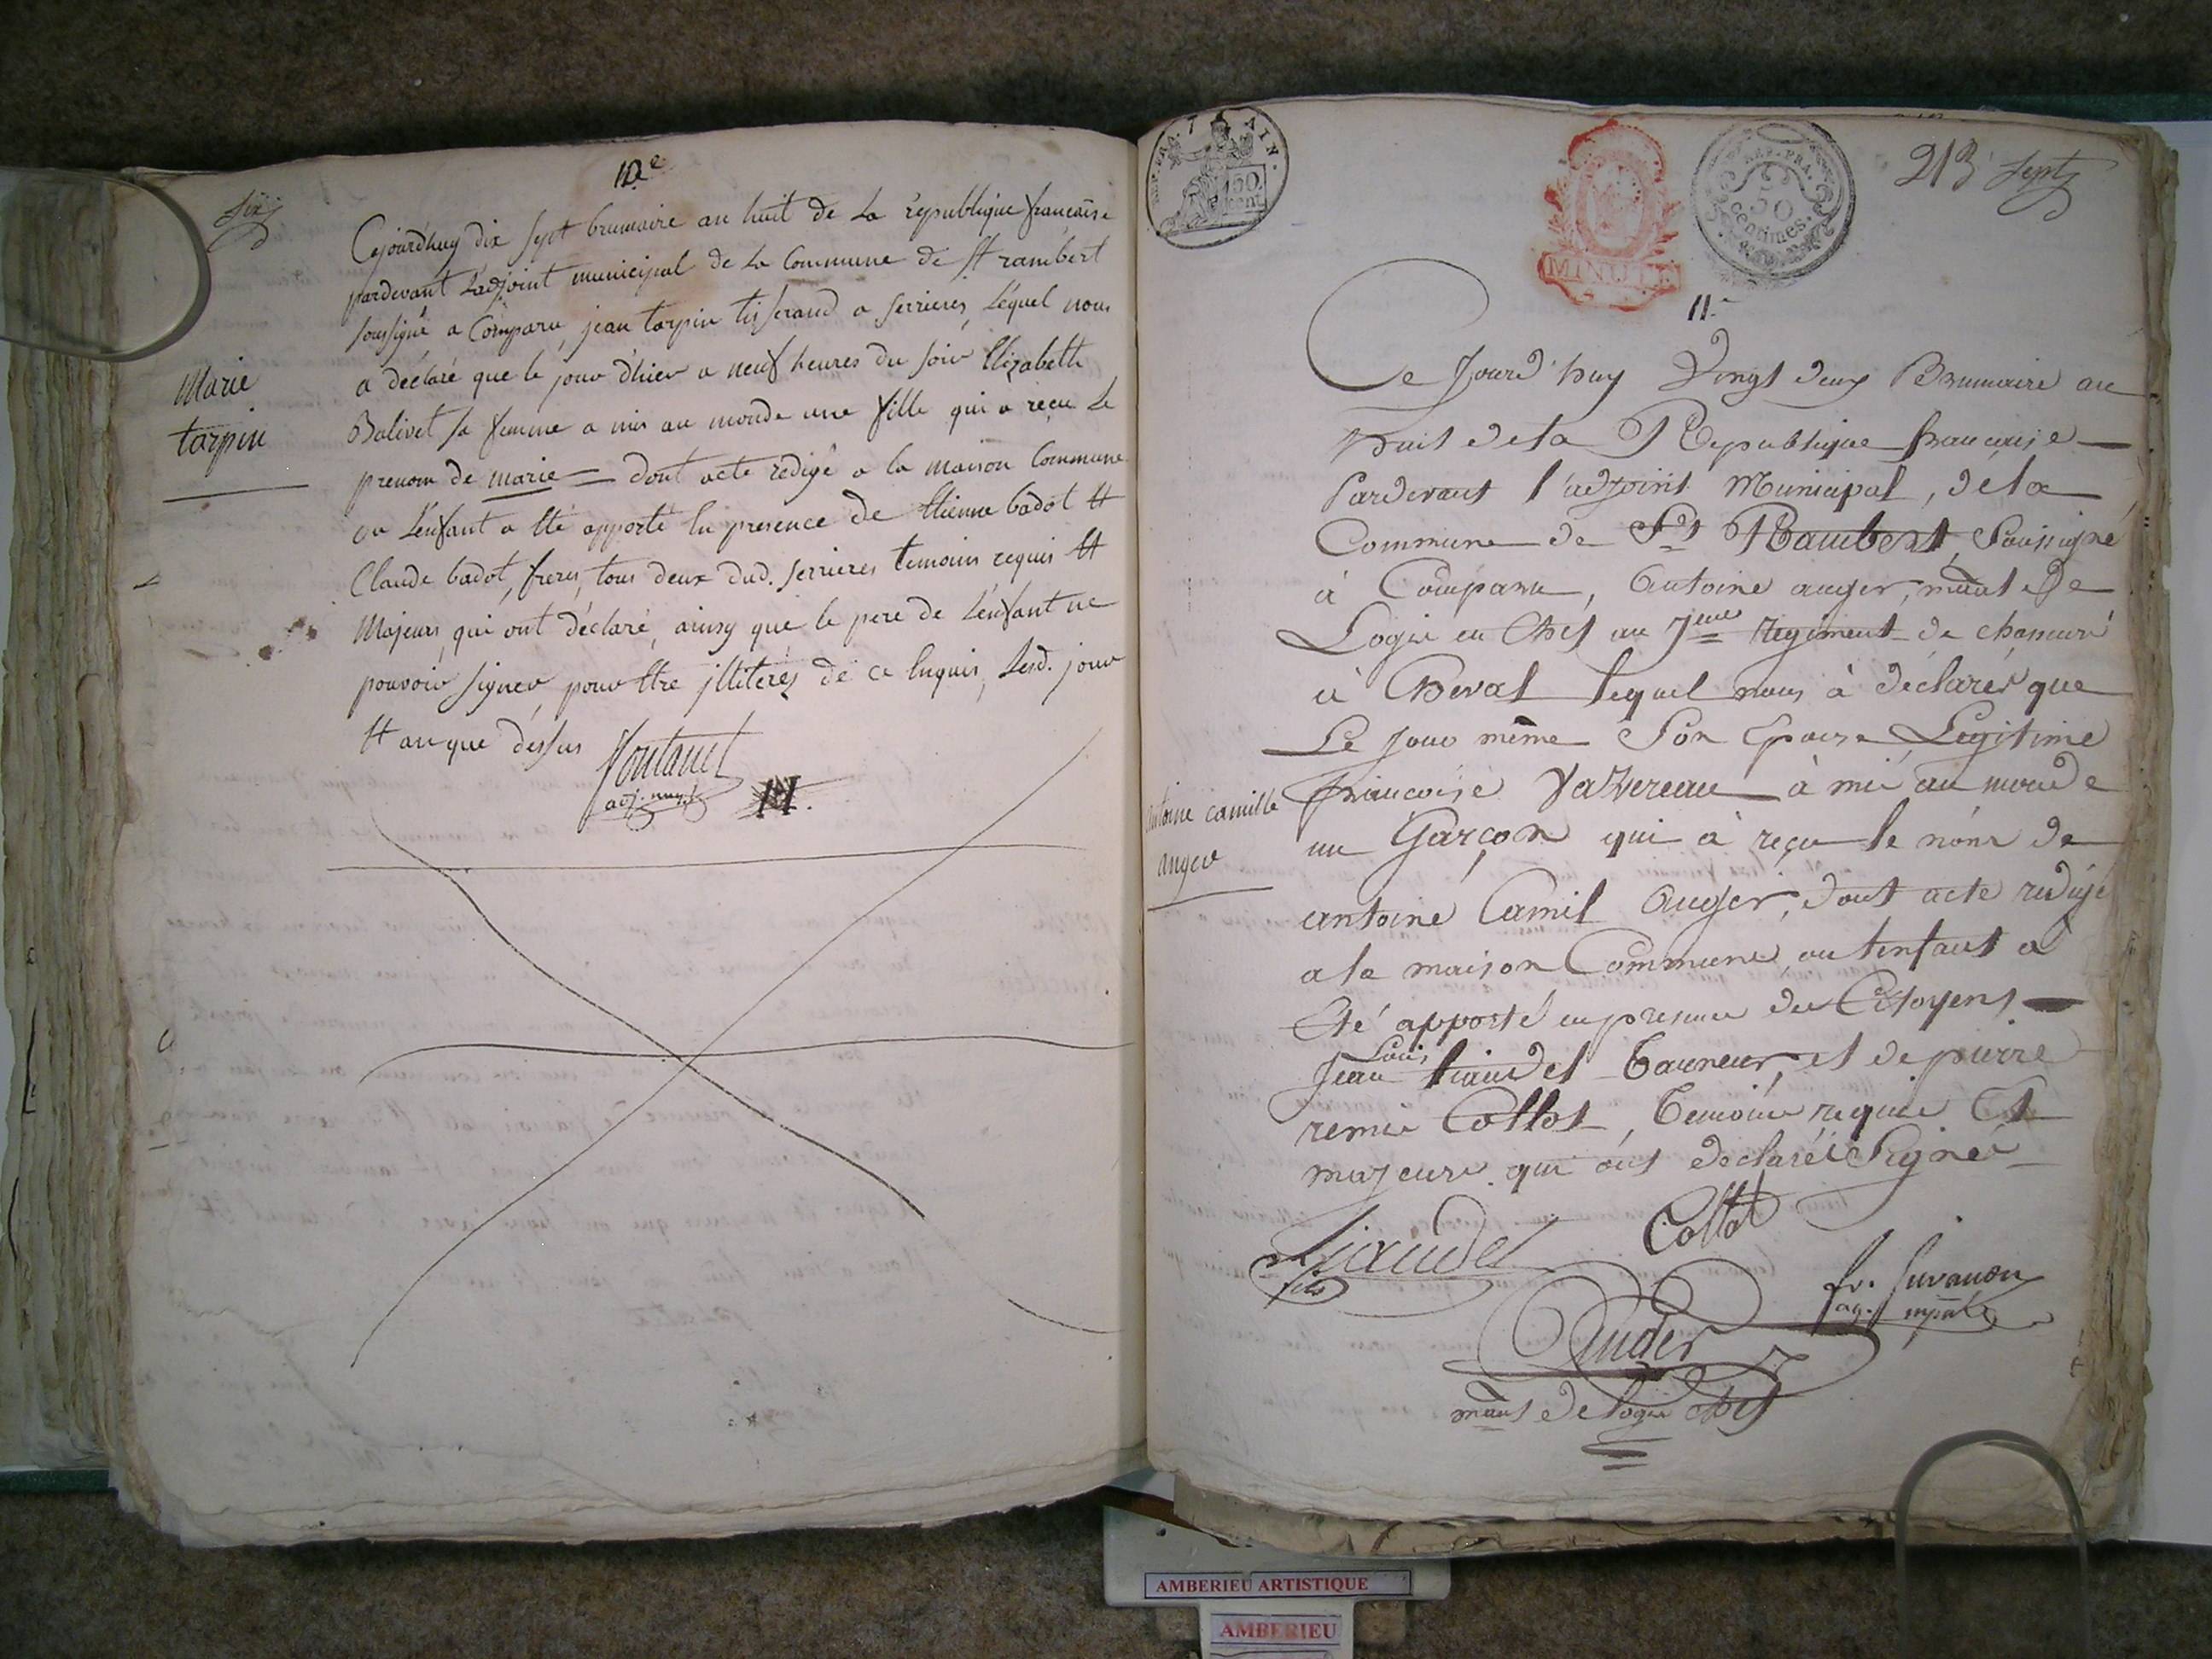 six
10e
Cejourdhuy dix sept brumaire an huit de La république francaise
pardevant L'adjoint municipal de La Commune de St rambert
soussigné a Comparu, jean tarpin tisserand a serrieres, Lequel nous
a déclaré que le jour d'hier a neuf heures du soir Elizabeth
Balivet sa femme a mis au monde une fille qui a reçu Le
prenom de marie = dont acte redigé a la maison Commune
ou L'enfant a Eté apporté En presence de Etienne badot Et
Claude badot, freres, tous deux dud. serrieres temoins requis Et
Majeurs, qui ont déclaré, ainsy que le pere de L'enfant ne
pouvoir signer, pour Etre illiterés de ce Enquis, Lesd. jour
Et an que dessus
Marie
tarpin
REP. FRA. 7 AIN.
50
cent.
MINUTE
REP. FRA.
50
centimes.
213 sept
11e
Ce Jourd'huy Vingt deux Brumaire an
huit de la Republique francaise
Pardevant l'adjoint Municipal, de la
Commune de St Rambert, Soussigné
à Comparu, Antoine auger, maal de
Logis en Chef au 7eme regiment de chasseurs
à Cheval lequel nous à déclaré que
Le jour même Son Epouse Legitime
francoise Vazereau à mis au monde
un Garçon qui à reçu le nom de
antoine Camil Auger, dont acte redigé
a la maison Commune, ou l'enfant a
Eté apporté en presence des Citoyens
Jean Louis Liaudet Tanneur, et de pierre
remis Collot, Temoins requis Et
majeurs. qui ont declaré Signer
antoine camille
auger
Liaudet
fils
Collot
fr. Juvanon
ag. mpal
Auger
maal de logis chef
AMBERIEU ARTISTIQUE
AMBERIEU